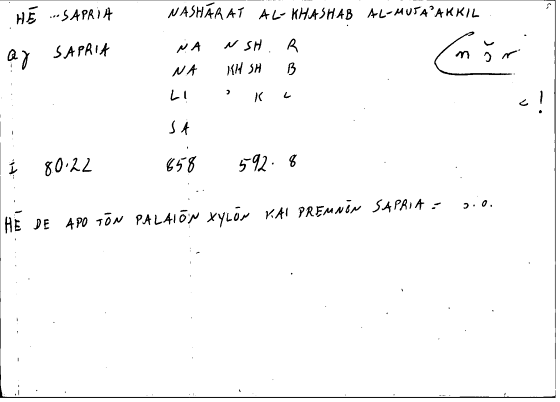 HĒ ...SAPRIA NASHĀRAT AL-KHASHAB AL-MUTA'AKKIL
SAPRIA NA N SH R
NA KH SH B
LI ' K L
SA
I 80.22 658 592. 8
HĒ DE APO TŌN PALAIŌN XYLŌN KAI PREMNŌN SAPRIA =